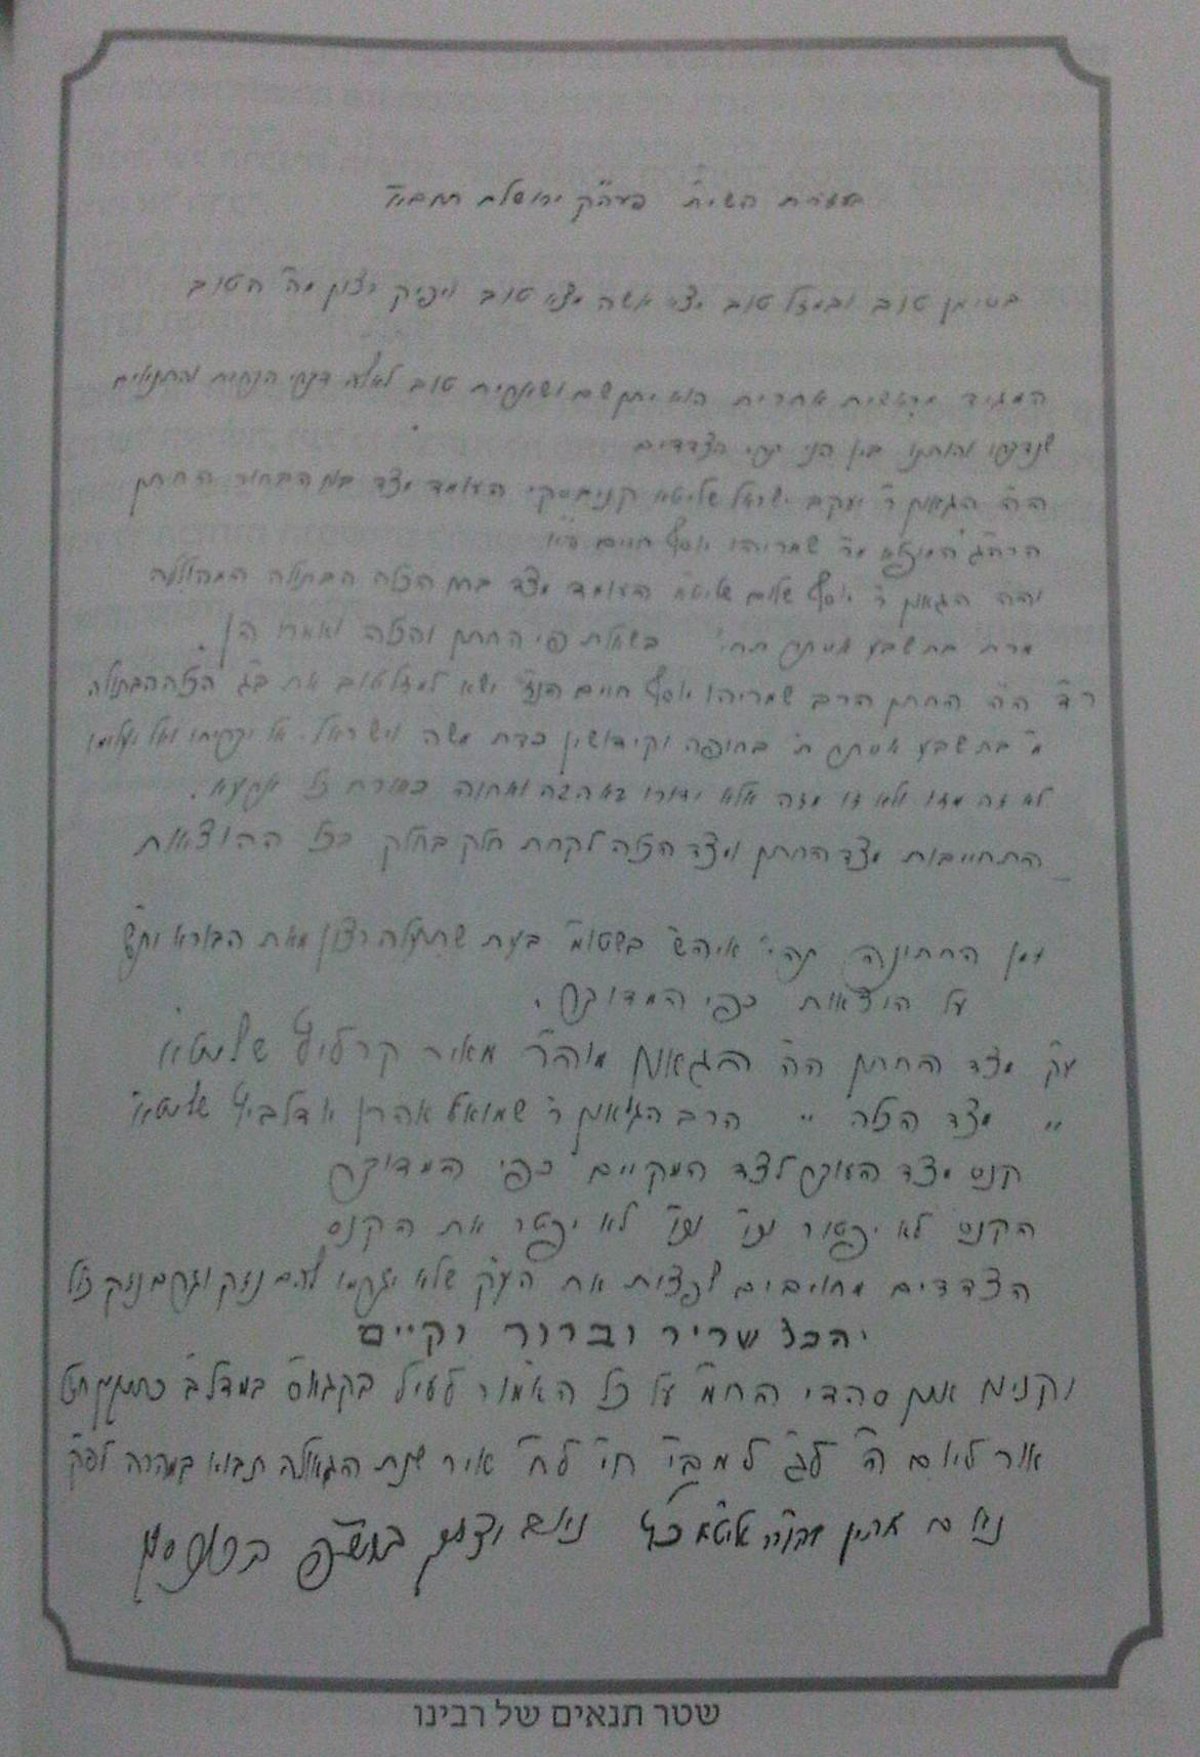 בעזרת השי״ת פעה״ק ירושלם תובב״א
בסימן טוב ובמזל טוב מצא אשה מצא טוב ויפיק רצון מה׳ הטוב
המגיד מראשית אחרית הוא יתן שם ושארית טוב לאלה דברי הברית והתנאים
שנדברו והותנו בין הני תרי הצדדים
ה״ה הגאון ר׳ יעקב ישראל שליטא קניבסקי העומד מצד בנו הבחור החתן
הרה״ג המופלג מר׳ שמריהו יוסף חיים
וה״ה הגאון ר׳ יוסף שלום שליט״א העומד מצד בתו הכלה הבתולה המהוללה
מרת בת שבע אסתר תחי׳ בשאלת פי החתן והכלה ואמרו הן.
ר״ד ה״ה החתן הרב שמריהו יוסף חיים הנ״ל ישא למזל טוב את ב״ג הכלה הבתולה
מ׳ בת שבע אסתר ת׳ בחופה וקידושין כדת משה וישראל. אל יבריחו ואל יעלימו
לא זה מזו ולא זו מזה אלא ידורו באהבה ואחוה כאורח כל ארעא.
התחייבות מצד החתן ומצד הכלה לקחת חלק בחלק בכל ההוצאות
זמן החתונה תהי׳ אי״ה בשטומ״צ בעת שתעלה רצון מאת הבורא ית״ש
על הוצאות כפי המדובר.
ע״ק מצד החתן ה״ה הגאון מוה״ר מאיר קרליץ שליט״א
״ מצד הכלה ״ הרב הגאון ר׳ שמואל אהרן יאדלביץ שליט״א
קנס מצד העובר לצד המקיים כפי המדובר
הקנס לא יפטור וכו׳ וכו׳ לא יפטר את הקנס
הצדדים מחויבים לפצות את הע״ק שלא יגרמו להם נזק וגרם נזק כלל
והכל שריר וברור וקיים
וקנינא אנן סהדי הח״מ על כל האמור לעיל בקגא״ס במדל״ב
אור ליום ה׳ ל״ג למב״י ח״י לח׳ אייר שנת הגאולה תבוא במהרה לפ״ק
שטר תנאים של רבינו